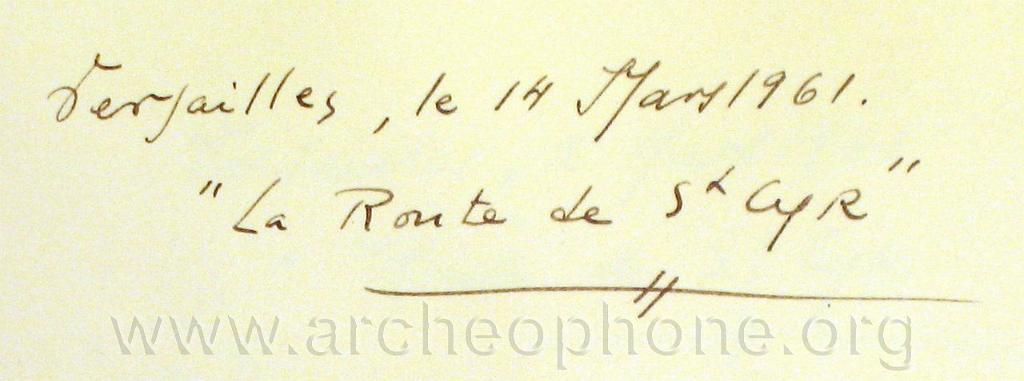 Versailles, le 14 Mars 1961.
"La Route de St CyR"
www.archeophone.org